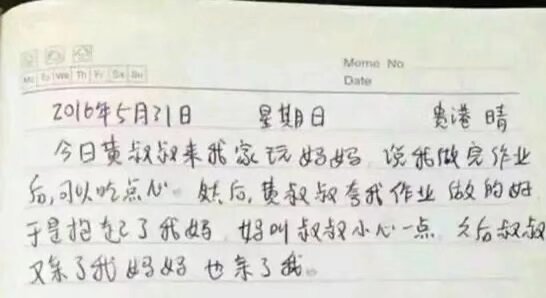 Memo No
Mo Tu We Th Fr Sa Su
Date
2016年5月31日 星期日 贵港 晴
今日黄叔叔来我家玩妈妈，说我做完作业
后，可以吃点心。然后，黄叔叔夸我作业做的好
于是抱起了我妈，妈叫叔叔小心一点，之后叔叔
又亲了我妈妈也亲了我。